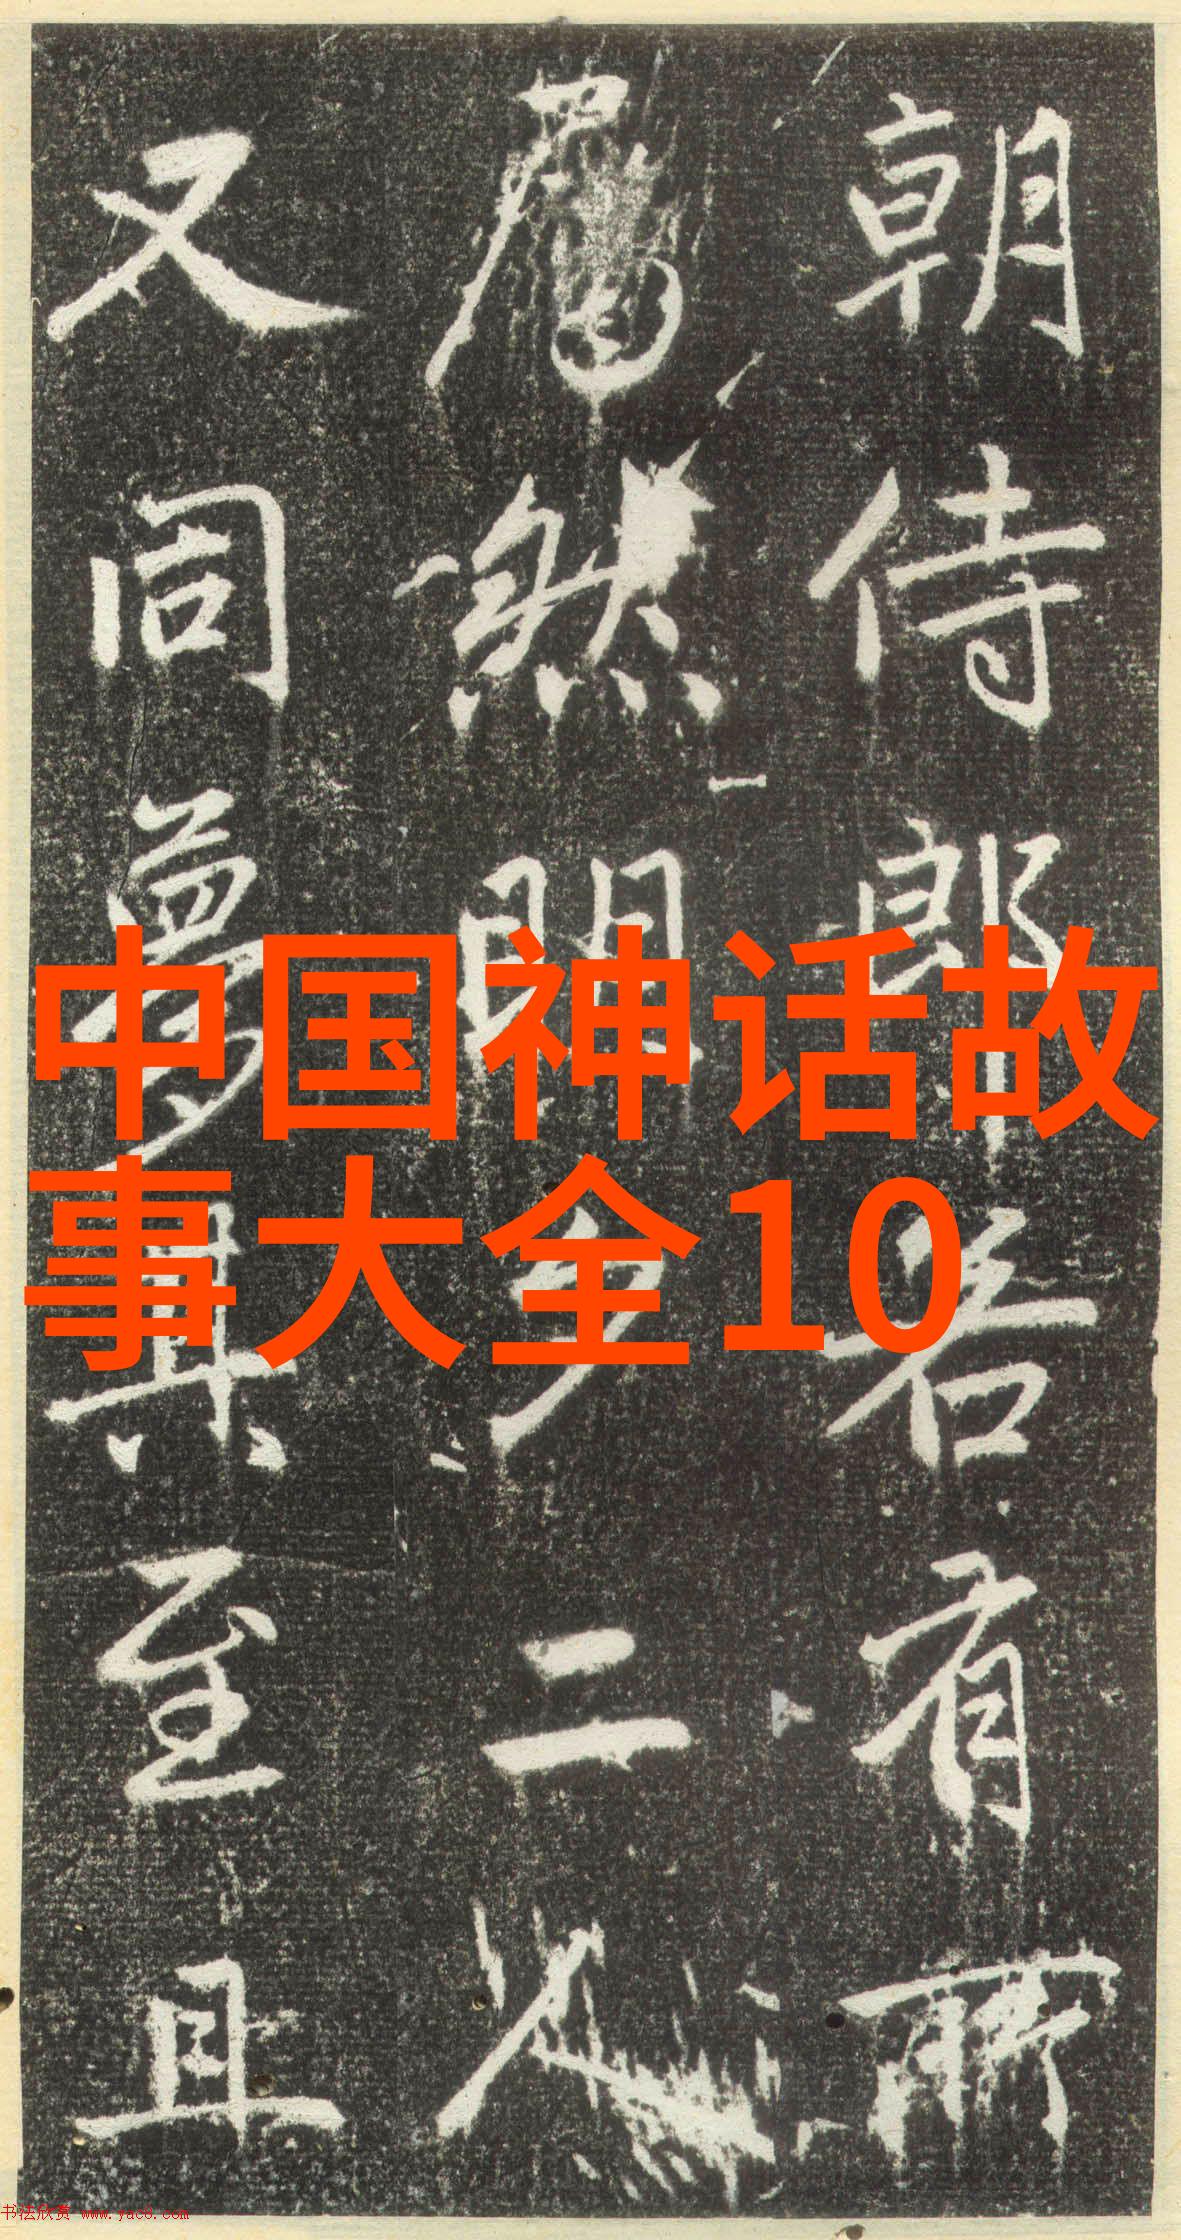 中国神话故
事大全10
朝侍郎若有所
然明夕二人
又同夢其至且
书法欣赏 www.yac8.com